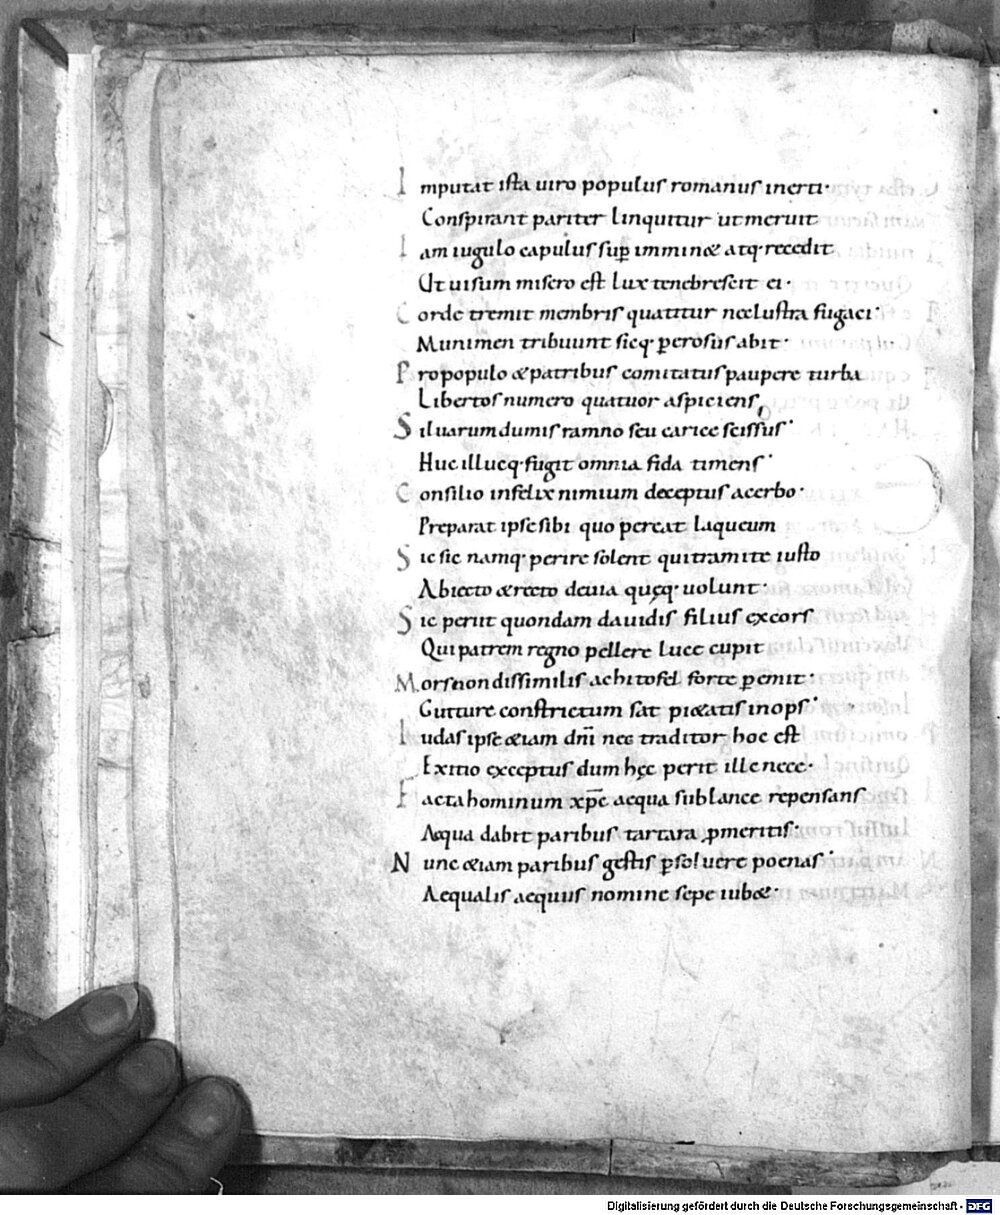 Imputat ista uiro populus romanus inerti·
Conspirant pariter linquitur ut meruit
Iam iugulo capulus sup̲ imminet atq· recedit
Ut uisum misero est lux tenebrescit ei·
Corde tremit membris quatitur nec lustra fugaci·
Munimen tribuunt sicq· ꝑosus abit·
Pro populo & patribus comitatus paupere turba
Libertos numero quatuor aspiciens,
Siluarum dumis ramno seu carice scissus·
Huc illucq· fugit omnia fida timens·
Consilio infelix nimium deceptus acerbo·
Preparat ipse sibi quo pereat laqueum
Sic sic namq· perire solent qui tramite iusto
Abiecto & recto deuia quęq· uolunt·
Sic periit quondam dauidis filius excors
Qui patrem regno pellere luce cupit
Mors non dissimilis achitofel forte ꝑemit·
Gutture constrictum sat pi&atis inops·
Iudas ipse &iam dn̄i nec traditor hoc est
Exitio exceptus dum hęc perit ille nece·
Facta hominum xp̄e aequa sub lance repensans
Aequa dabit paribus tartara ꝓ meritis·
Nunc &iam paribus gestis ꝑsoluere poenas·
Aequalis aequus nomine sepe iub&·
Digitalisierung gefördert durch die Deutsche Forschungsgemeinschaft - DFG